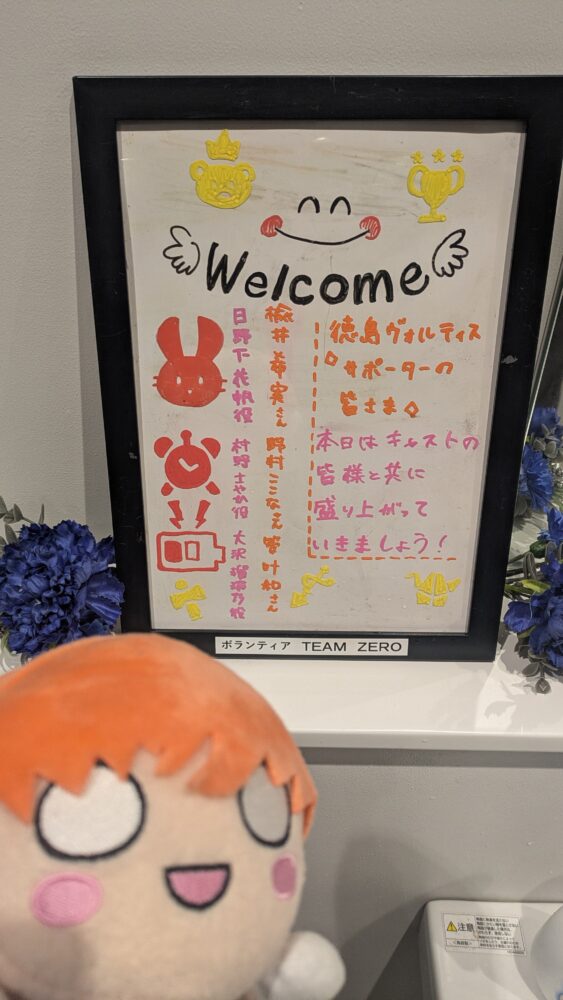 Welcome
徳島ヴォルティス
サポーターの
皆さま◇
本日はキャストの
皆様と共に
盛り上がって
いきましょう！
楡井希実さん 野村ここなさん 菅叶和さん
日野下花帆役 村野さやか役 大沢瑠璃乃役
ボランティア TEAM ZERO
注意